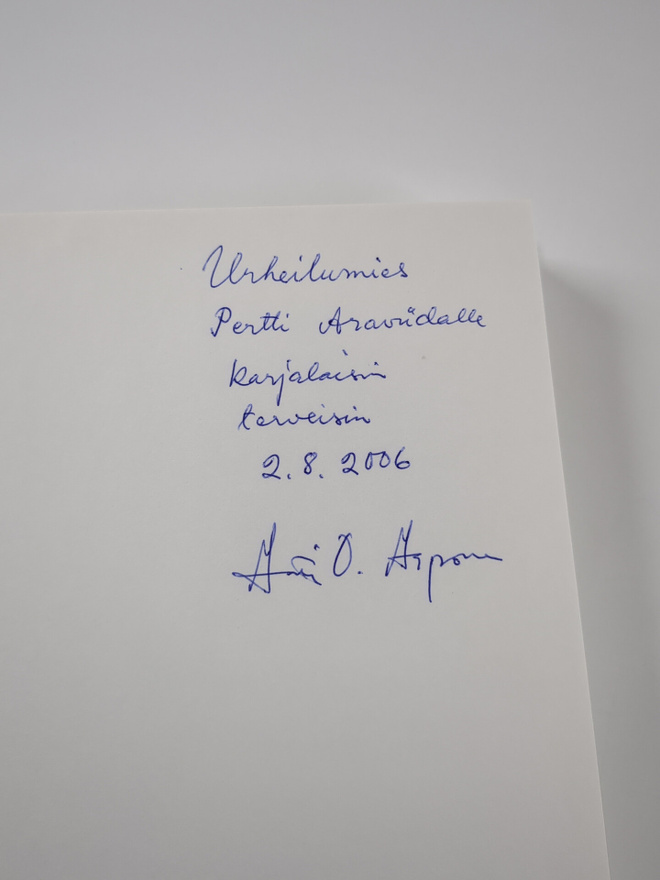 Urheilumies
Pertti Araviidalle
karjalaisin
terveisin
2.8.2006
O. Arponen